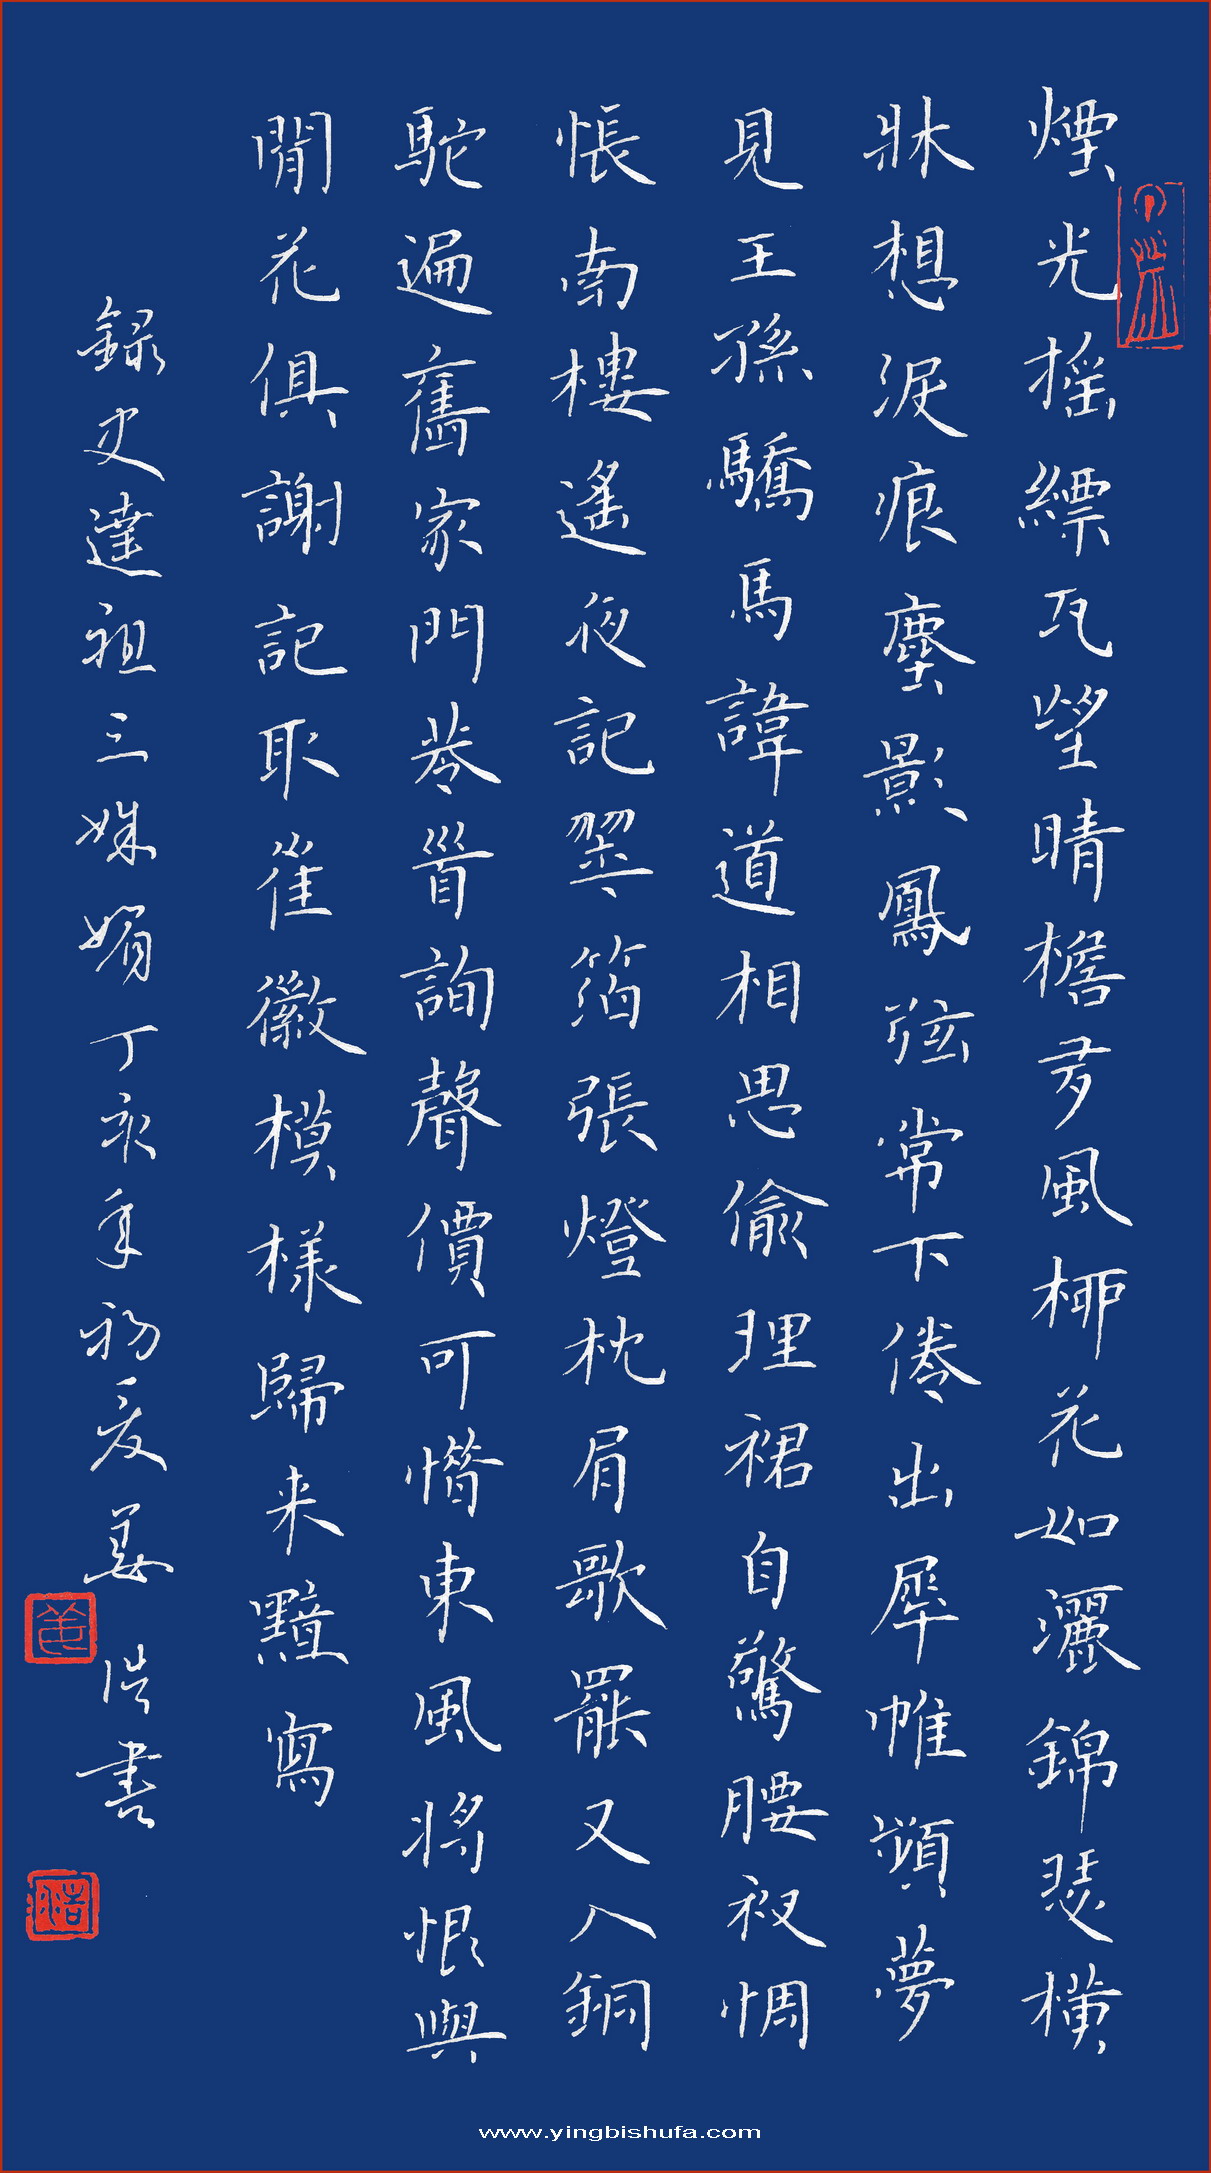 煙光摇縹瓦望晴檐多風栁花如灑錦瑟横
牀想淚痕塵影鳳弦常下倦出犀帷頻夢
見王孫驕馬諱道相思偷理裙自驚腰衩惆
悵南樓遙夜記翠箔張燈枕肩歌罷又入銅
駝遍舊家門巷首詢聲價可惜東風將恨與
閒花俱謝記取崔徽模樣歸来黯寫
録史達祖三姝媚丁亥年初夏姜浩書
www.yingbishufa.com